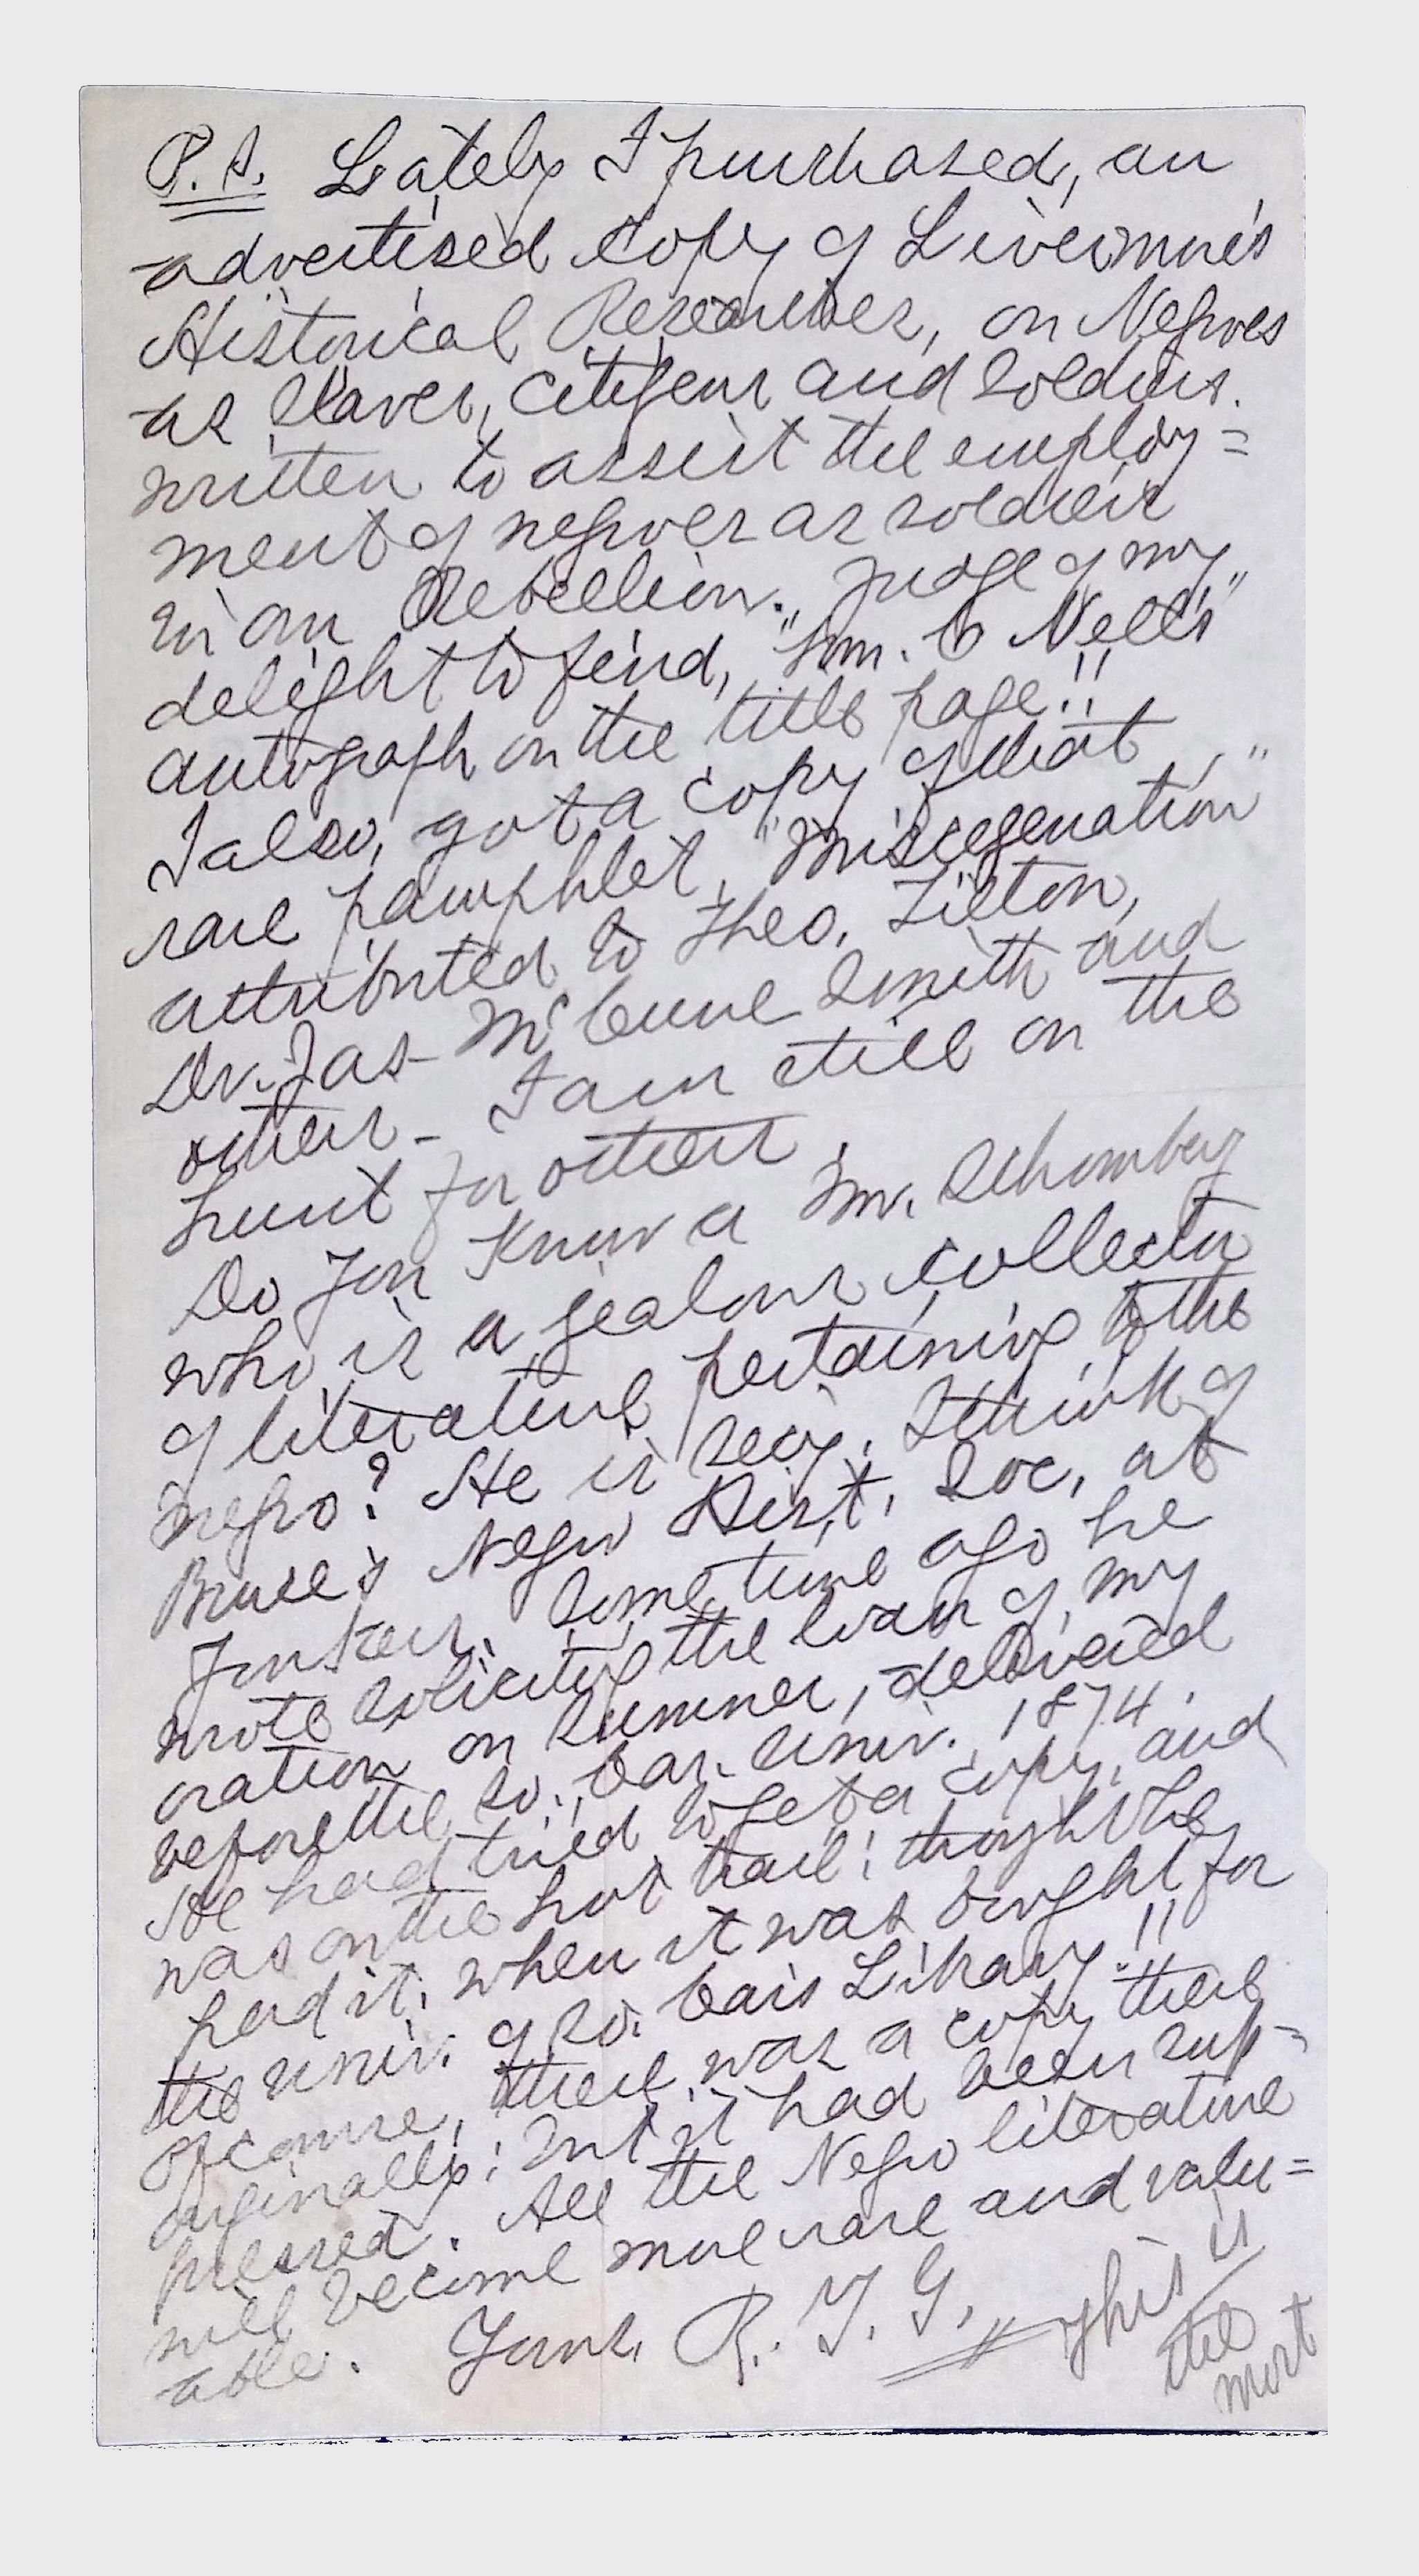 P.S. Lately I purchased, an
advertised copy of Livermore's
Historical Researches, on Negroes
as Slaves, Citizens and Soldiers.
written to assist the employ=
ment of negroes as soldiers
in our Rebellion. Judge of my
delight to find, "Wm. C Nell's"
autograph on the title page!!
I also, got a copy of that
rare pamphlet, "Miscegenation"
attributed to Theo. Tilton,
Dr. Jas McCune Smith and
others - I am still on the
hunt for others.
Do you know a Mr. Schomberg
who is a zealous collector
of literature pertaining to the
negro? He is secy. I think of
Bruce's Negro Hist. Soc, at
Yonkers. Some time ago he
wrote soliciting the loan of my
oration on Sumner, delivered
before the So. Car. Univ. 1874.
He had tried to get a copy, and
was on the hot trail; thought he
had it, when it was bought for
the Univ. of So. Car's Library!!
Of course, there was a copy there
originally; but it had been sup-
pressed. All the Negro literature
will become more rare and valu=
able. Yours R. T. G. This is
the
most